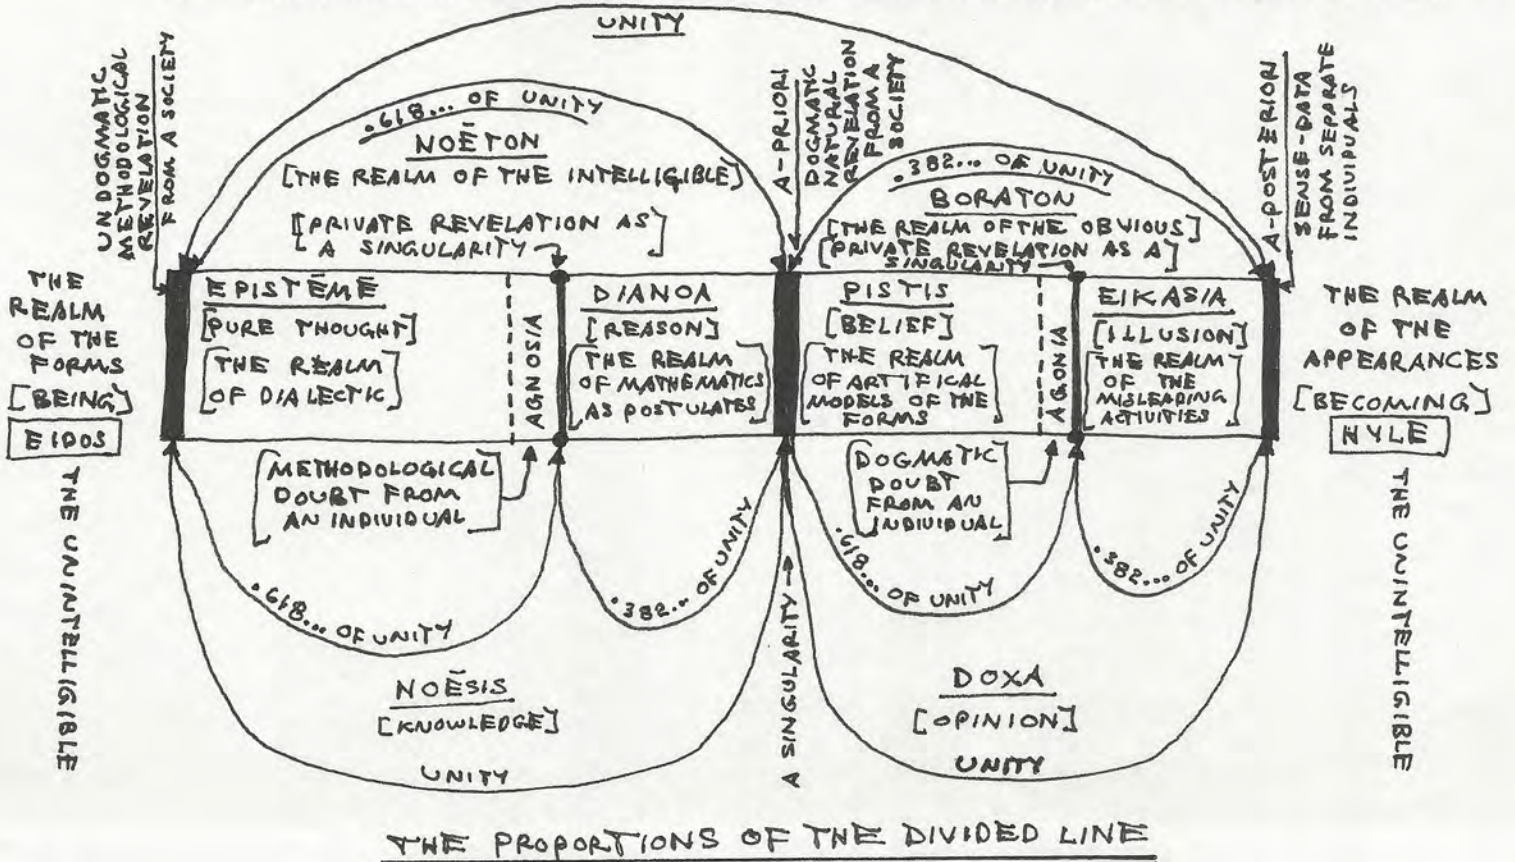 UNITY
UNDOGMATIC
METHODOLOGICAL
REVELATION
FROM A SOCIETY
.618... OF UNITY
NOĒTON
[THE REALM OF THE INTELLIGIBLE]
[PRIVATE REVELATION AS
A SINGULARITY]
A-PRIORI
DOGMATIC
NATURAL
REVELATION
FROM A
SOCIETY
.382... OF UNITY
BORATON
[THE REALM OF THE OBVIOUS]
[PRIVATE REVELATION AS A
SINGULARITY]
A-POSTERIORI
SENSE-DATA
FROM SEPARATE
INDIVIDUALS
THE
REALM
OF THE
FORMS
[BEING]
EIDOS
THE UNINTELLIGIBLE
EPISTĒMĒ
[PURE THOUGHT]
[THE REALM
OF DIALECTIC]
AGNOSIA
DIANOA
[REASON]
[THE REALM
OF MATHEMATICS
AS POSTULATES]
PISTIS
[BELIEF]
[THE REALM
OF ARTIFICAL
MODELS OF THE
FORMS]
AGONIA
EIKASIA
[ILLUSION]
[THE REALM
OF THE
MISLEADING
ACTIVITIES]
THE REALM
OF THE
APPEARANCES
[BECOMING]
HYLE
THE UNINTELLIGIBLE
[METHODOLOGICAL
DOUBT FROM
AN INDIVIDUAL]
[DOGMATIC
DOUBT
FROM AN
INDIVIDUAL]
.618... OF UNITY
.382... OF UNITY
.618... OF UNITY
.382... OF UNITY
NOĒSIS
[KNOWLEDGE]
UNITY
A SINGULARITY
DOXA
[OPINION]
UNITY
THE PROPORTIONS OF THE DIVIDED LINE